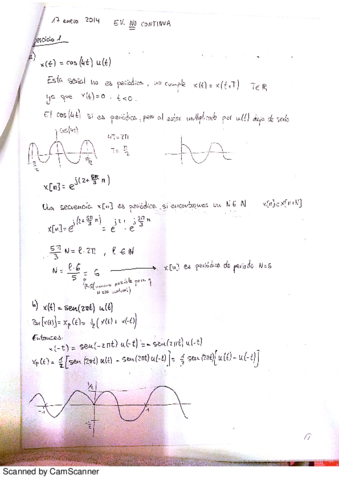 17 enero 2014 EV. NO CONTINUA
Ejercicio 1
a)
x(t) = cos(4t) u(t)
Esta señal no es periódica, no cumple x(t) = x(t+T) T∈R
ya que x(t)=0 t<0.
El cos(4t) si es periódica, pero al estar multiplicado por u(t) deja de serlo
cos(4t)
4T=2π
T= π/2
x[n]= e^j(2+5π/3 n)
Una secuencia x[n] es periódica, si encontramos un N∈N x[n]=x[n+N]
x[n]= e^j(2+5π/3 n) = e^j2 · e^j5π/3 n
5π/3 N = l·2π, l ∈ N
N = l·6/5 = 6 → x[n] es periódica de periodo N=6
b) x(t)= sen(2πt) u(t)
= xp(t) = 1/2 (x(t) + x(-t))
Entonces:
x(-t) = sen(-2πt) u(-t) = - sen(2πt) u(-t)
xp(t) = 1/2 [sen(2πt) u(t) - sen(2πt) u(-t)] = 1/2 sen(2πt) [u(t) - u(-t)]
1/2
-1 1
-1/2
Scanned by CamScanner